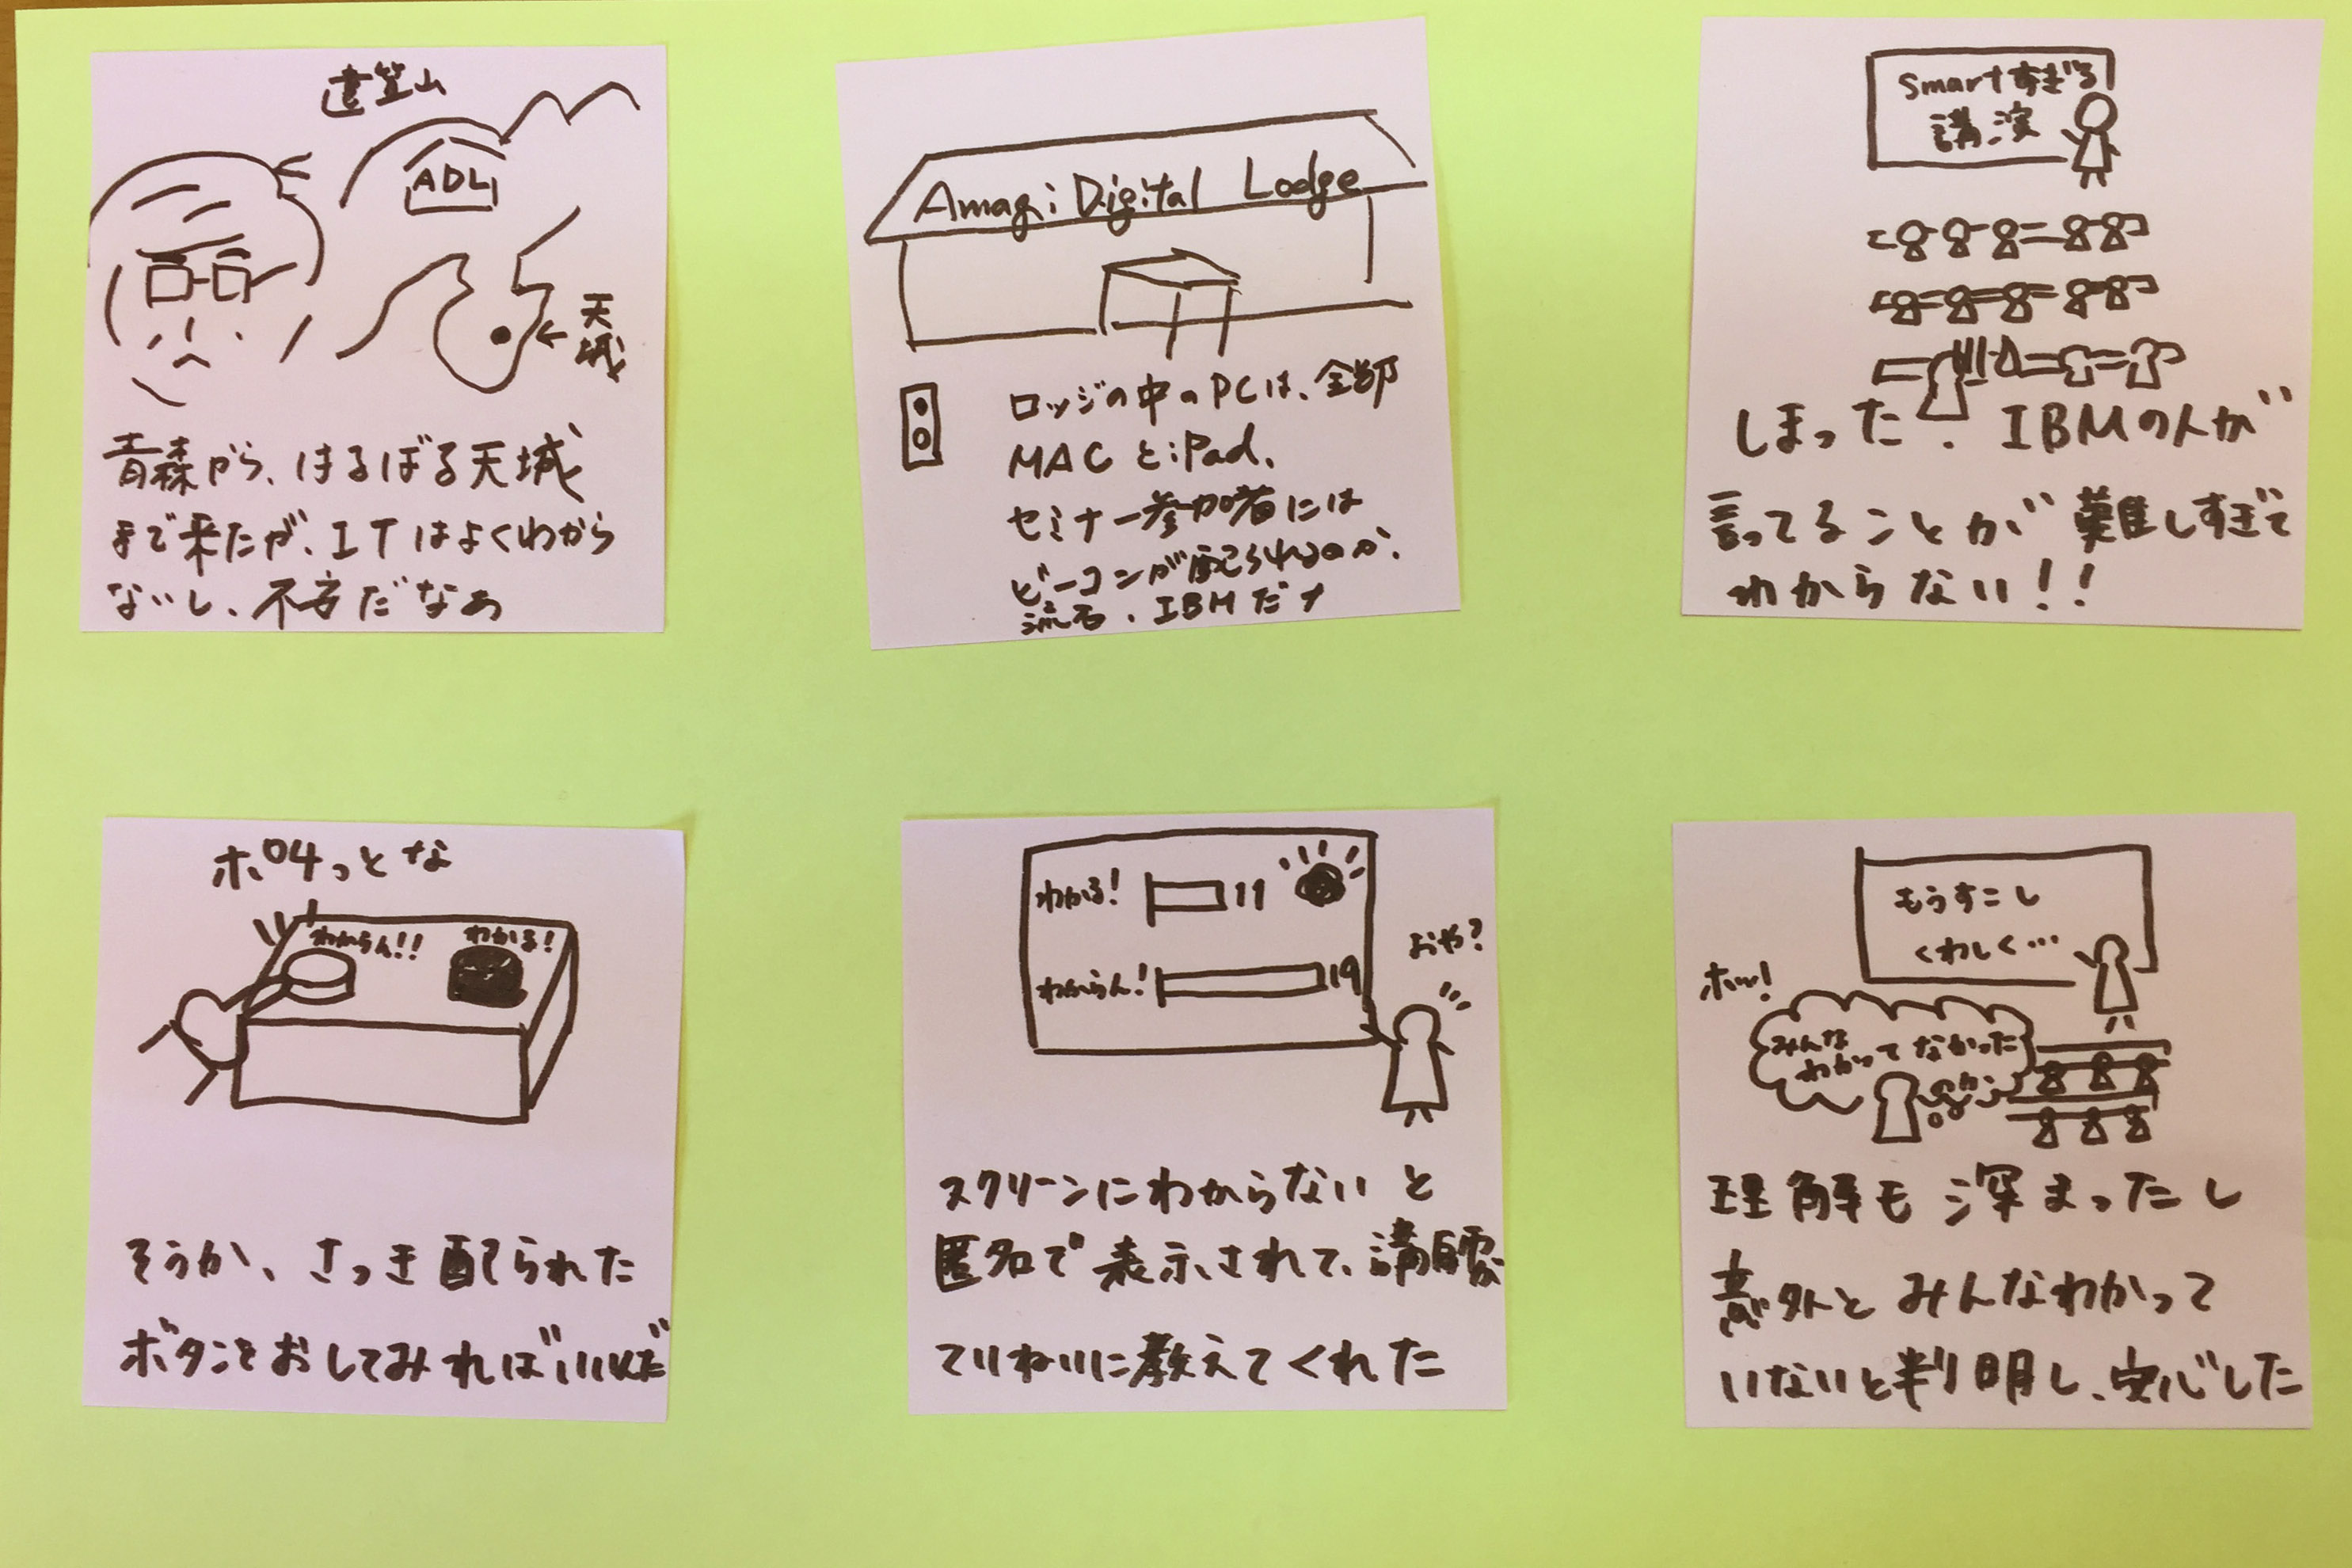 遠笠山
ADL
天城
青森から、はるばる天城
まで来たが、ITはよくわから
ないし、不安だなあ
Amagi Digital Lodge
ロッジの中のPCは、全部
MACとiPad、
セミナー参加者には
ビーコンが配られるのか、
流石、IBMだナ
Smartすぎる
講演
しまった、IBMの人が
言ってることが難しすぎて
わからない!!
ポチっとな
わからん!!
わかる!
そうか、さっき配られた
ボタンをおしてみればいいんだ
わかる! 11
わからん! 19
おや?
スクリーンにわからないと
匿名で表示されて、講師が
ていねいに教えてくれた
もうすこし
くわしく…
ホッ!
みんな
わかってなかった
のか
理解も深まったし
意外とみんなわかって
いないと判明し、安心した